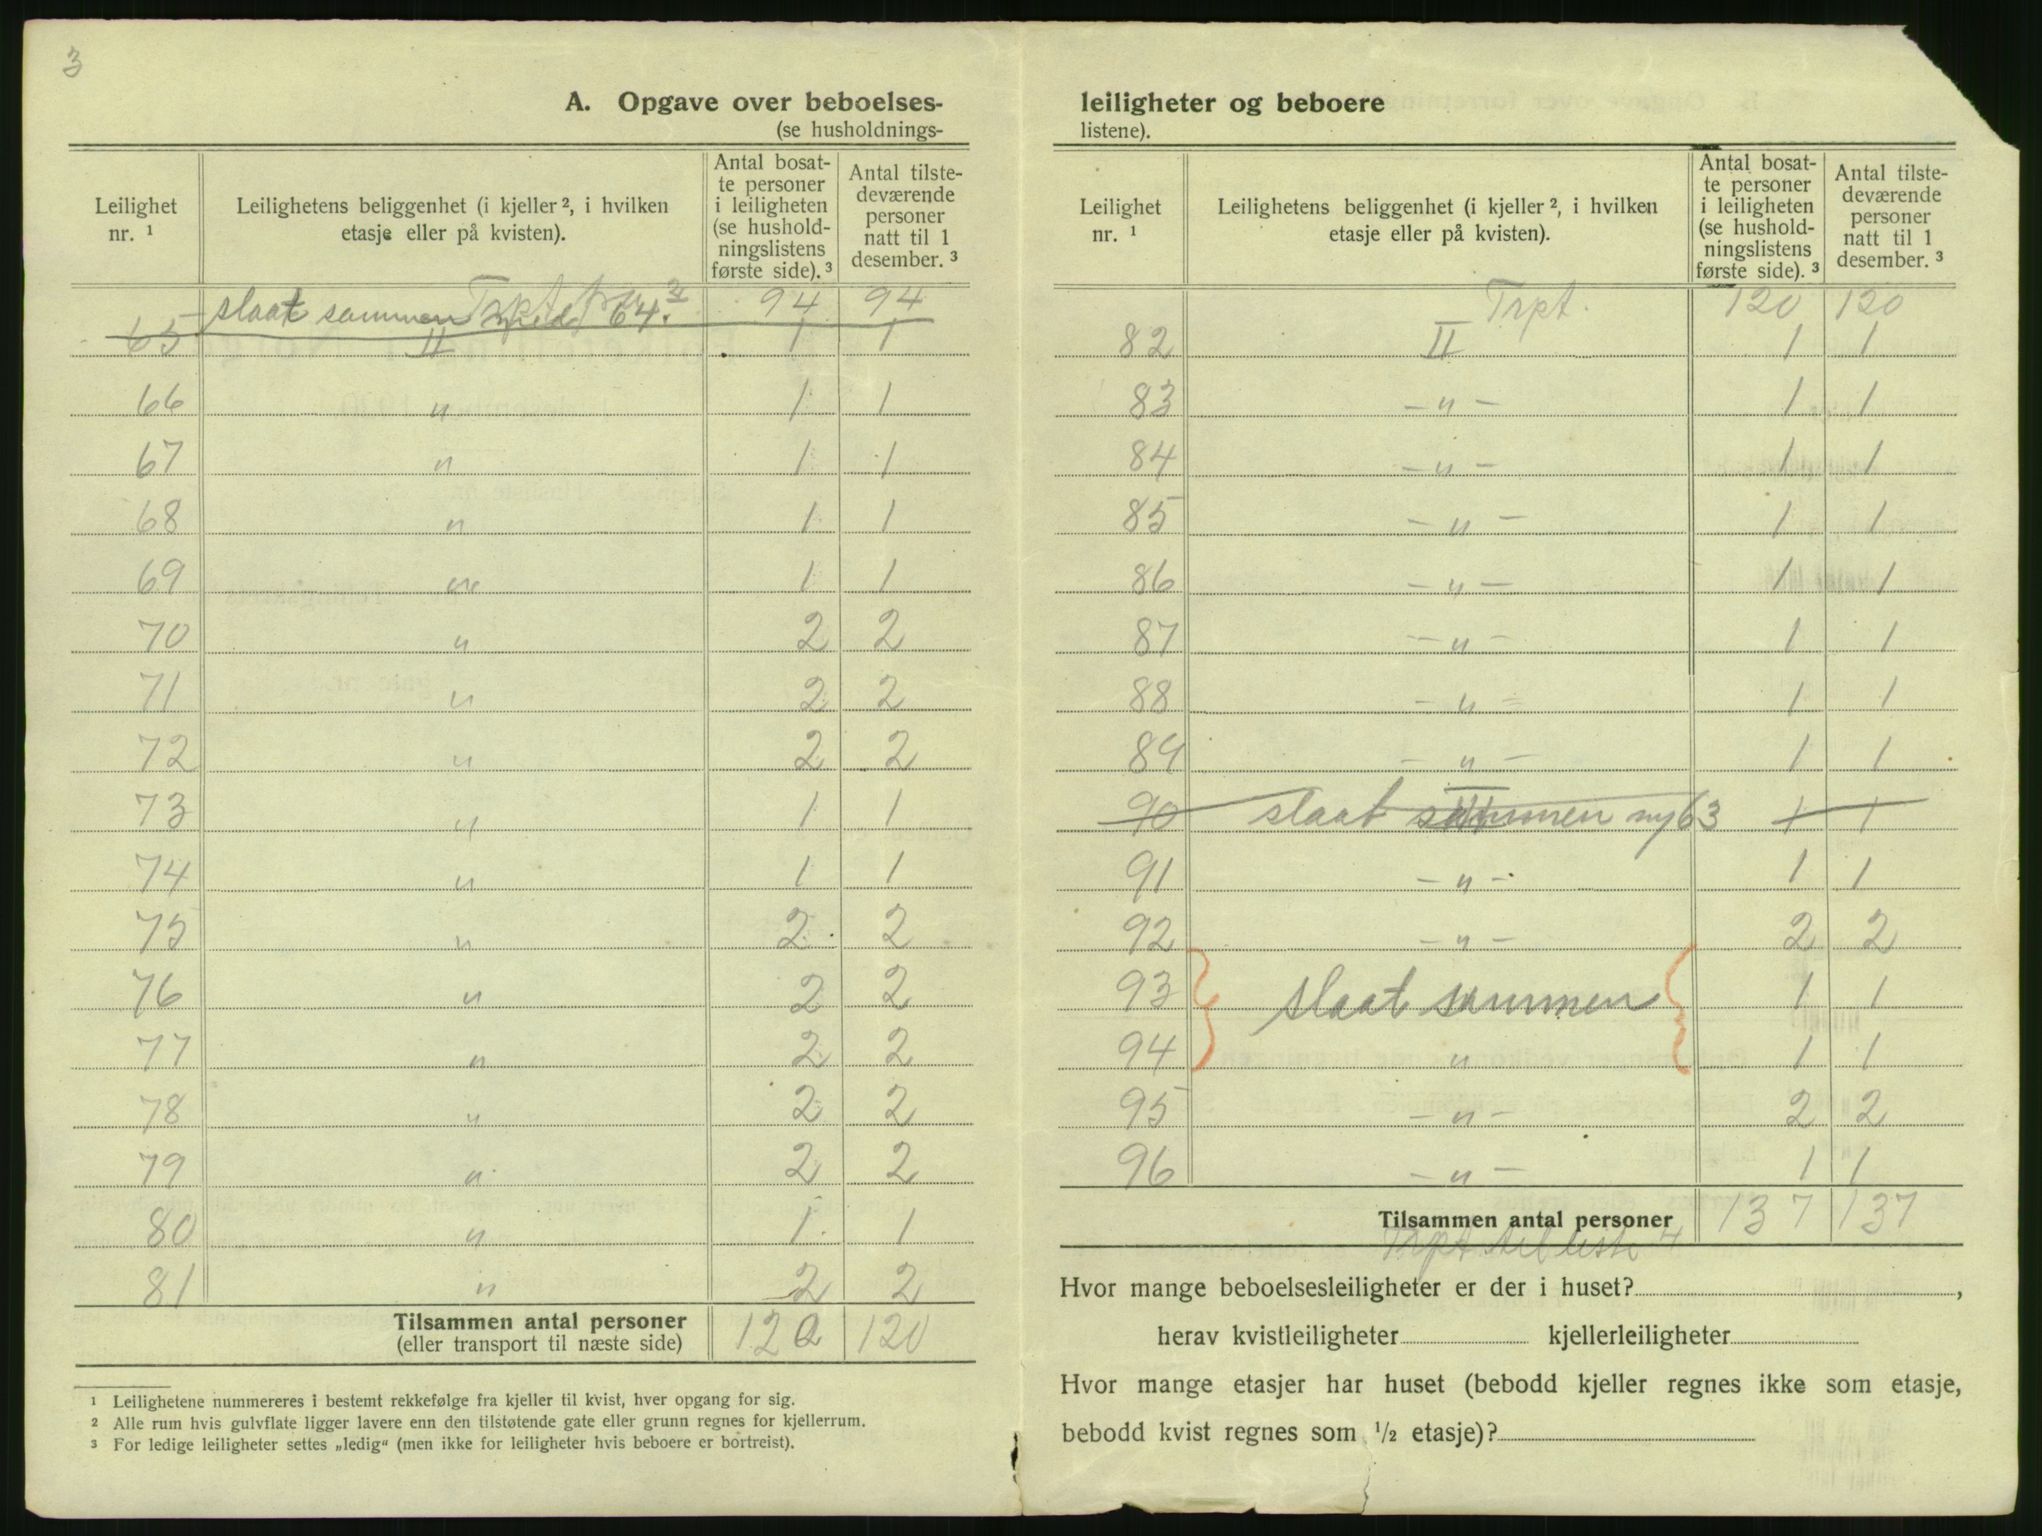 3
A. Opgave over beboelses-
(se husholdnings-
Leilighet nr. ¹ | Leilighetens beliggenhet (i kjeller ², i hvilken etasje eller på kvisten). | Antal bosat-te personer i leiligheten (se hushold-ningslistens første side). ³ | Antal tilste-deværende personer natt til 1 desember. ³
slaat sammen med 64. Trpt 94 94
65 II 1 1
66 " 1 1
67 " 1 1
68 " 1 1
69 " 1 1
70 " 2 2
71 " 2 2
72 " 2 2
73 " 1 1
74 " 1 1
75 " 2 2
76 " 2 2
77 " 2 2
78 " 2 2
79 " 2 2
80 " 1 1
81 " 2 2
Tilsammen antal personer
(eller transport til næste side) 120 120
¹ Leilighetene nummereres i bestemt rekkefølge fra kjeller til kvist, hver opgang for sig.
² Alle rum hvis gulvflate ligger lavere enn den tilstøtende gate eller grunn regnes for kjellerrum.
³ For ledige leiligheter settes „ledig“ (men ikke for leiligheter hvis beboere er bortreist).
leiligheter og beboere
listene).
Leilighet nr. ¹ | Leilighetens beliggenhet (i kjeller ², i hvilken etasje eller på kvisten). | Antal bosat-te personer i leiligheten (se hushold-ningslistens første side). ³ | Antal tilste-deværende personer natt til 1 desember. ³
Trpt. 120 120
82 II 1 1
83 – " – 1 1
84 – " – 1 1
85 – " – 1 1
86 – " – 1 1
87 – " – 1 1
88 – " – 1 1
89 – " – 1 1
90 slaat sammen 63 1 1
91 – " – 1 1
92 – " – 2 2
93 slaat sammen 1 1
94 " 1 1
95 – " – 2 2
96 – " – 1 1
Tilsammen antal personer 137 137
Trpt til liste 4
Hvor mange beboelsesleiligheter er der i huset? ,
herav kvistleiligheter kjellerleiligheter
Hvor mange etasjer har huset (bebodd kjeller regnes ikke som etasje,
bebodd kvist regnes som ½ etasje)?